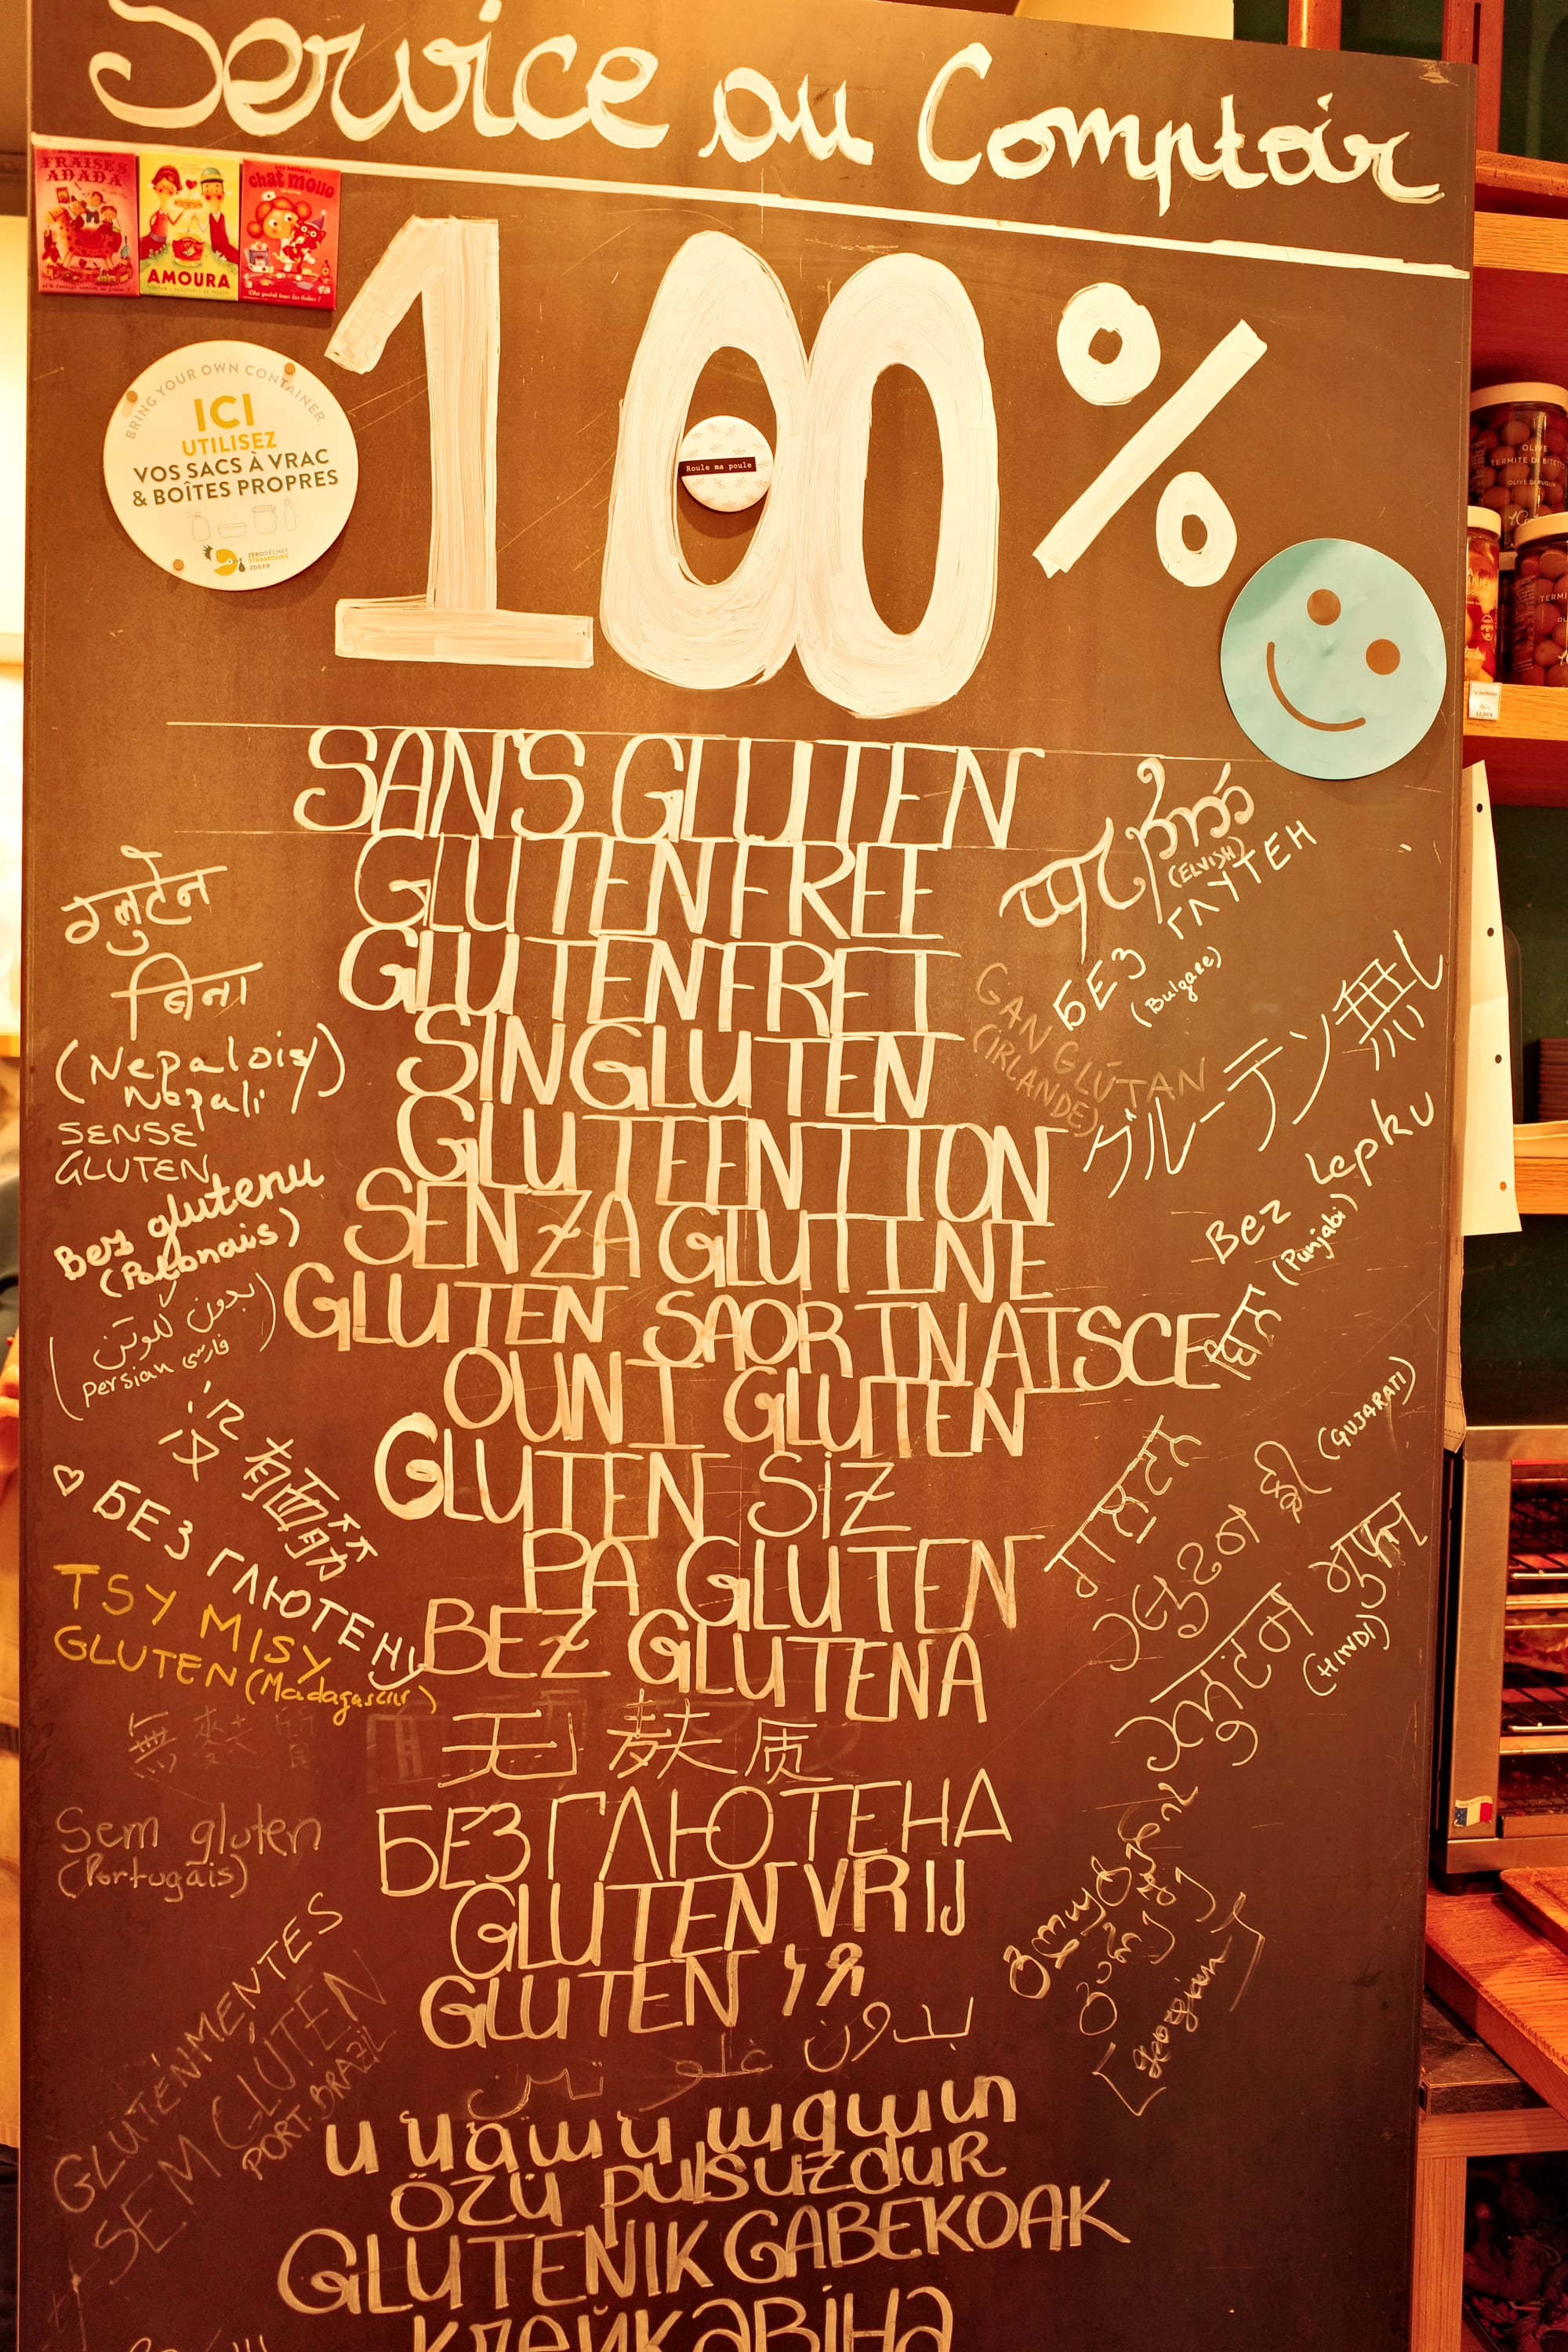 Service au Comptoir
FRAISES
ADADA
AMOURA
chat mouo
BRING YOUR OWN CONTAINER
ICI
UTILISEZ
VOS SACS À VRAC
& BOÎTES PROPRES
ZERODECHET
STRASBOURG
ZDS.FR
100%
Roule ma poule
SANS GLUTEN
GLUTENFREE
GLUTENFREI
SIN GLUTEN
GLUTEENITON
SENZA GLUTINE
GLUTEN SAOR IN AISCE
OUNI GLUTEN
GLUTEN SiZ
PA GLUTEN
BEZ GLUTENA
无麸质
БЕЗ ГЛЮТЕНА
GLUTEN VRIJ
GLUTEN
بدون غلوتين
özü pulsuzdur
GLUTENIK GABEKOAK
ग्लुटेन
बिना
(Nepalois)
Nepali
SENSE
GLUTEN
Bez glutenu
(Polonais)
بدون گلوتن
persian فارسی
没有面筋
БЕЗ ГЛЮТЕНУ
TSY MISY
GLUTEN (Madagascar)
無麩質
Sem gluten
(Portugais)
GLUTÉNMENTES
SEM GLÚTEN
PORT. BRAZIL
(ELVISH)
БЕЗ ГЛУТЕН
(Bulgare)
GAN GLÚTAN
(IRLANDE)
グルーテン無し
Bez lepku
(Punjabi)
(GUJARATI)
(HINDI)
[Georgian]
OLIVE
TERMITE DI BITETTO